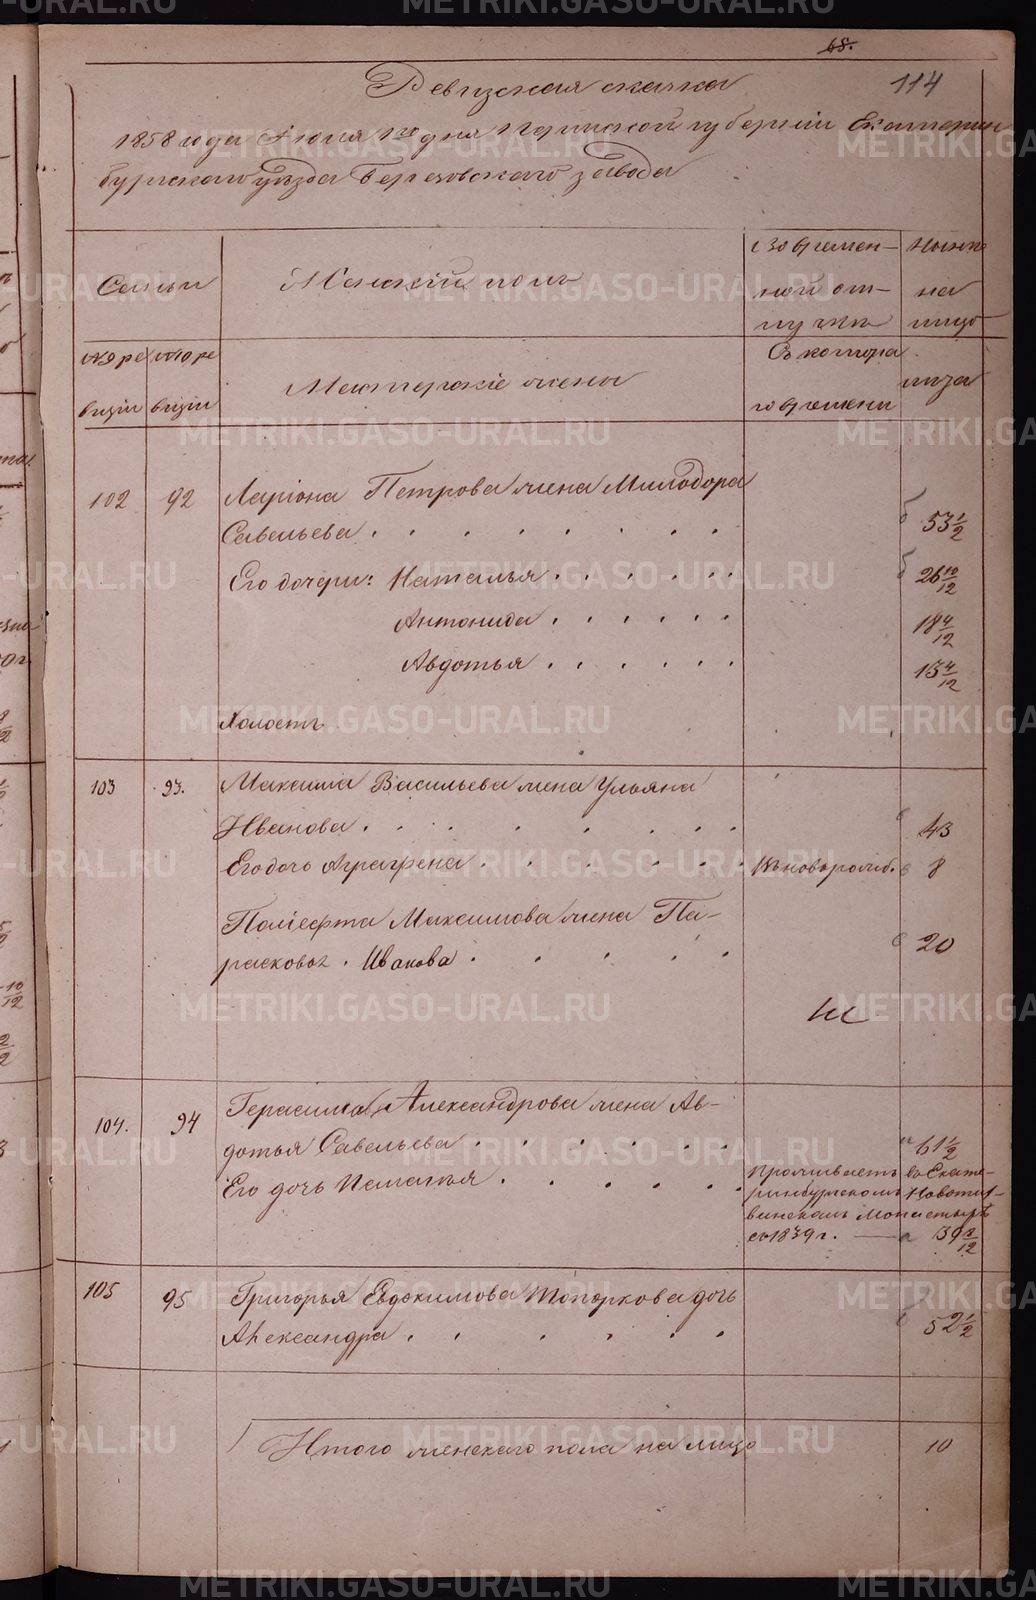 68.
114
Ревизская сказка
1858 года Июня 1го дня Пермской губернiи Екатерин
бургскаго уѣзда Березовскаго завода
Семьи
Женскiй полъ
Во времен-
ной от-
лучкѣ
Нынѣ
на
лицо
Съ котора
го времени
лѣта
Мастерскiе жены
102 92 Ларiона Петрова жена Милодора
Савельева . . . . . . . 53 1/2
Его дочери: Наталья . . . . . . 26 10/12
Антонида . . . . . . 18 4/12
Авдотья . . . . . . 15 4/12
Холостъ
103 93. Максима Васильева жена Ульяна
Иванова . . . . . . . 43
Его дочь Аграфена . . . . . . Вѣноворожд. 8
Полiефта Максимова жена Па-
расковья . Иванова . . . . . 20
104. 94 Герасима Александрова жена Ав-
дотья Савельева . . . . . . 61 1/2
Его дочь Наталья . . . . . .
Проживаетъ въ Екате-
ринбургскомъ Новотих-
винскомъ Монастырѣ
съ 1839 г. — 39 8/12
105 95 Григорья Евдокимова Топоркова дочь
Александра . . . . . . 52 1/2
Итого женскаго пола на лицо 10
METRIKI.GASO-URAL.RU